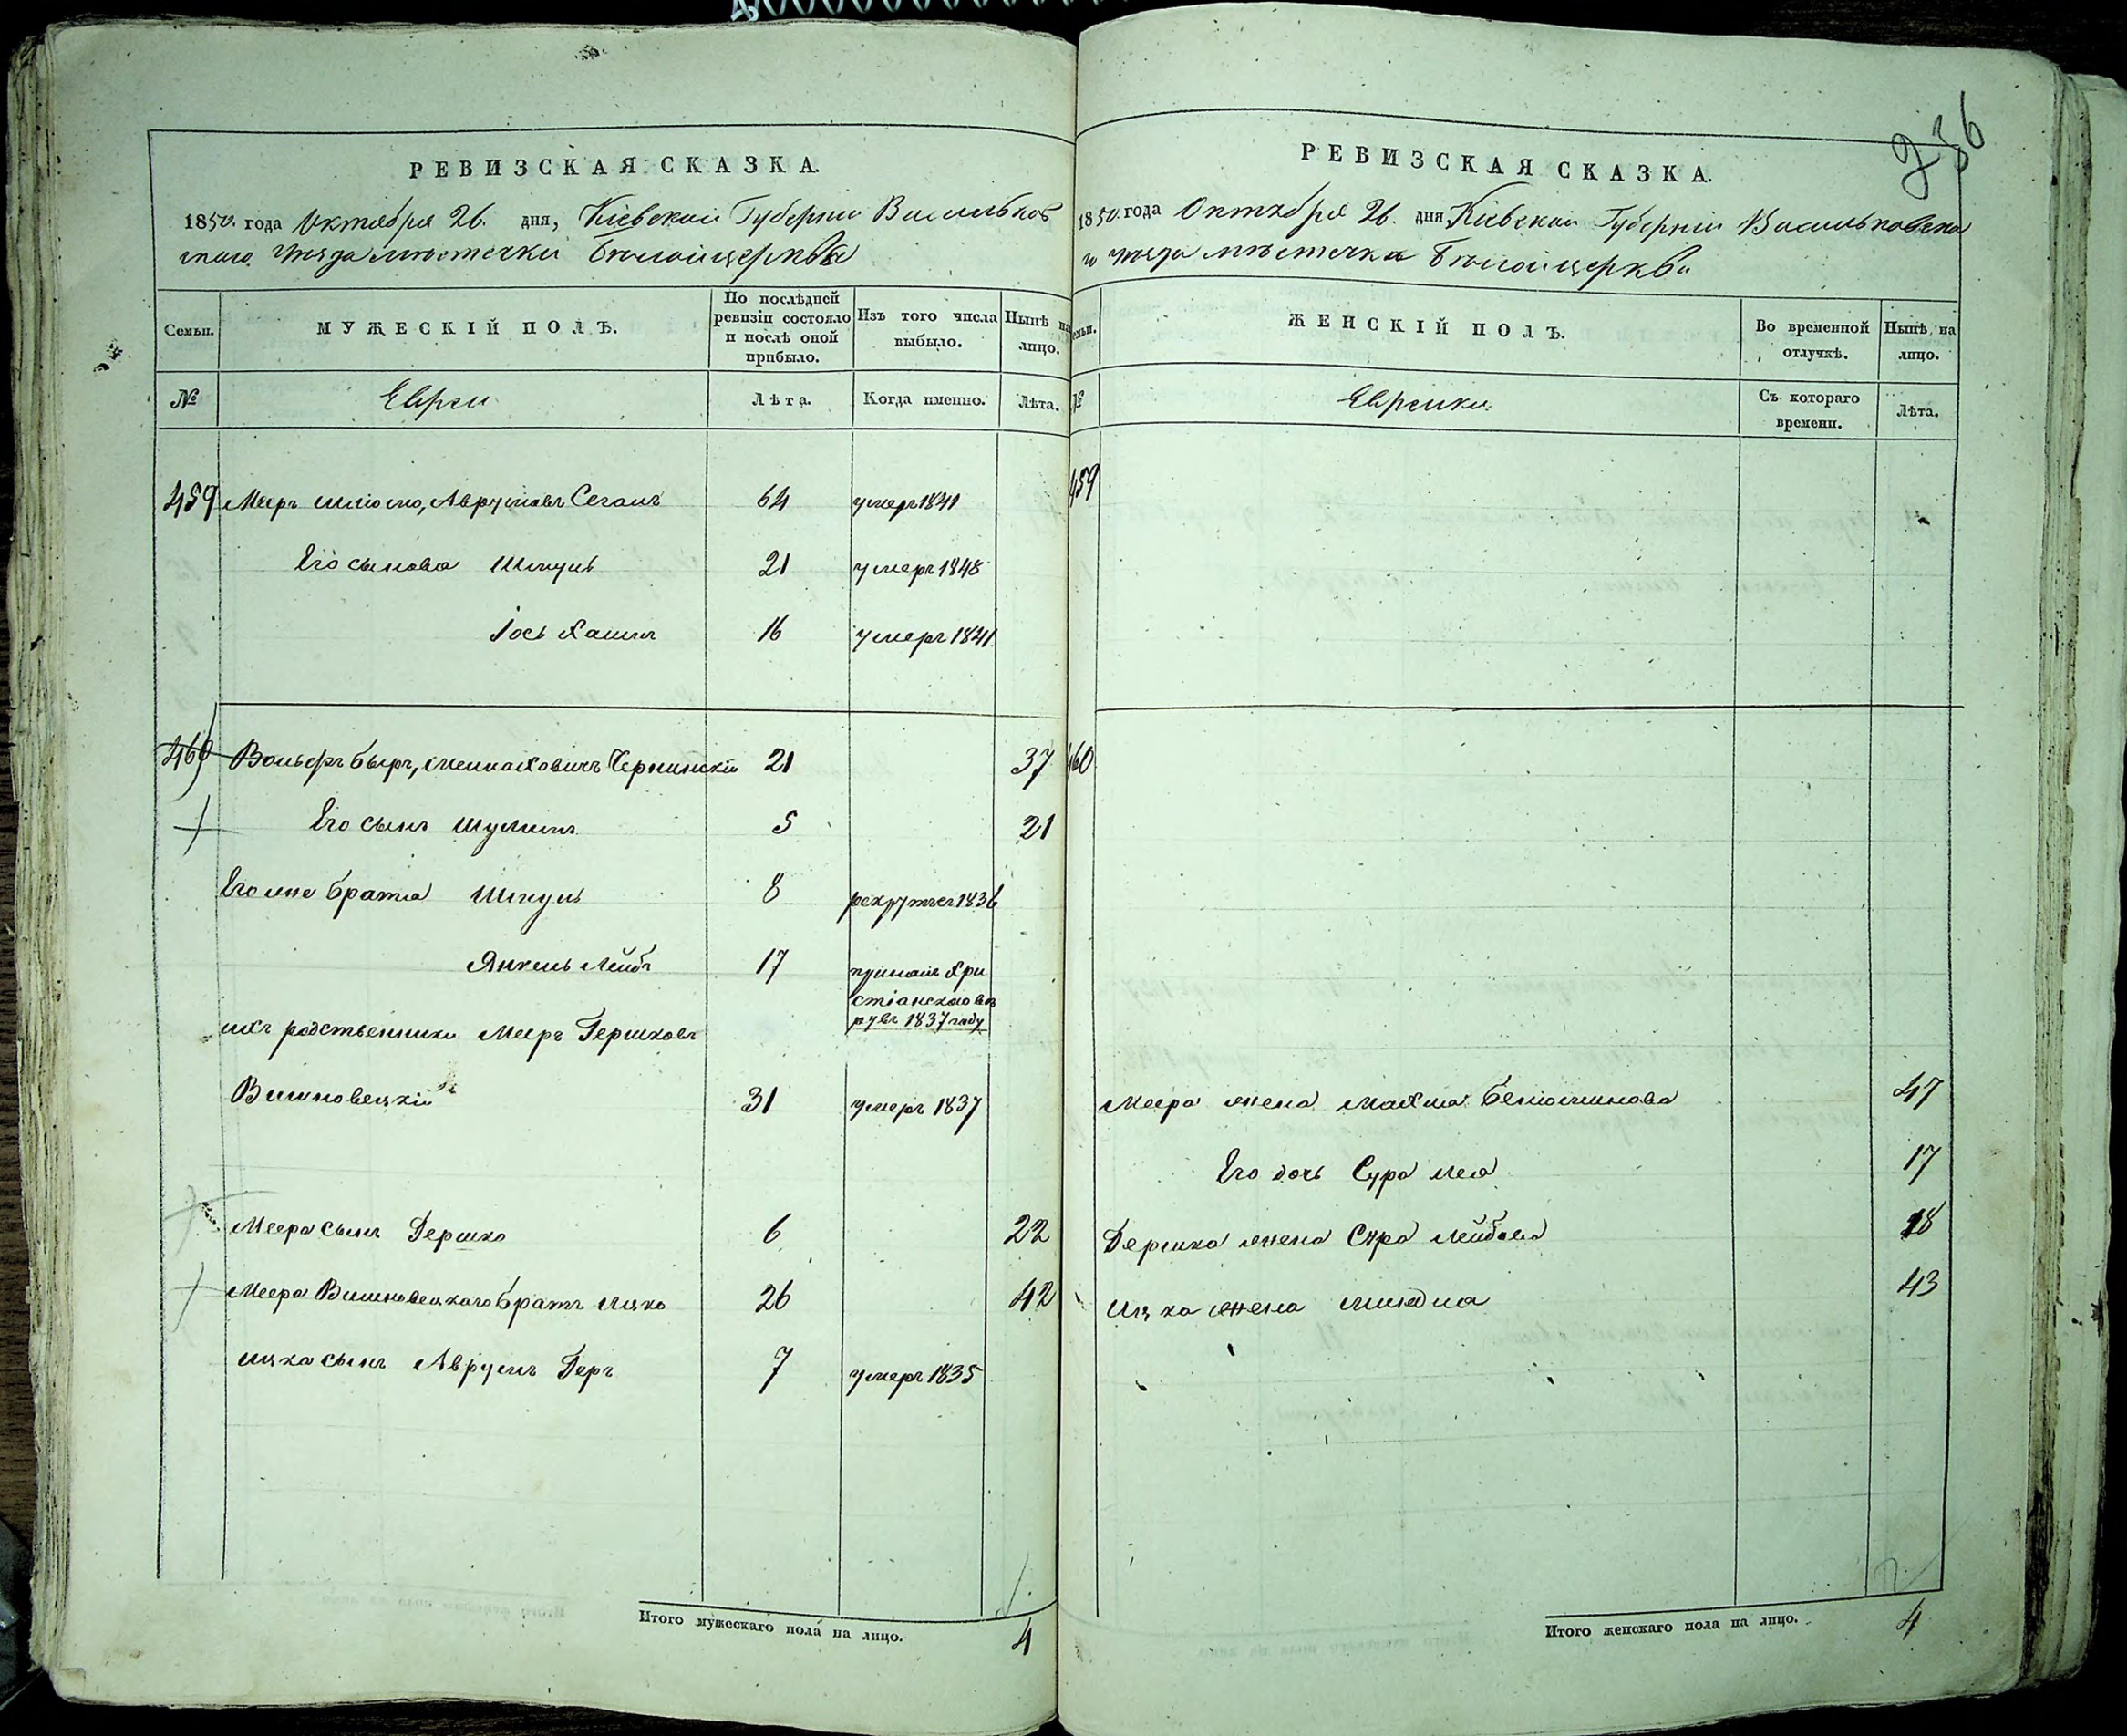 236
РЕВИЗСКАЯ СКАЗКА.
1850. года Октября 26. дня, Кіевской Губерніи Васильков
скаго уѣзда мѣстечка Бѣлойцеркви
Семьи.
МУЖЕСКІЙ ПОЛЪ.
По послѣдней ревизіи состояло и послѣ оной прибыло.
Изъ того числа выбыло.
Нынѣ на лицо.
№
Евреи
Лѣта.
Когда именно.
Лѣта.
459 Мееръ Шлюмо, Аврумовъ Сегалъ 64 умеръ 1841
Его сыновья Шмуль 21 умеръ 1848
Іось Хаимъ 16 умеръ 1841
460 Вольфъ Беръ, 21 37
Его сынъ Шулимъ 5 21
Его же братья Шмуль 8 рекрутъ 1836
Янкель Лейбъ 17 принялъ Хри
стіанскою вѣ
ру въ 1837 году
ихъ родственники Мееръ Гершковъ
Вишновецкій 31 умеръ 1837
Меера сынъ Гершко 6 22
Меера Вишновецкаго братъ Ицко 26 42
Ицка сынъ Аврумъ Геръ 7 умеръ 1835
Итого мужескаго пола на лицо. 4
РЕВИЗСКАЯ СКАЗКА.
1850. года Октября 26. дня Кіевской Губерніи Васильковска
го уѣзда мѣстечка Бѣлойцеркви
Семьи.
ЖЕНСКІЙ ПОЛЪ.
Во временной отлучкѣ.
Нынѣ на лицо.
№
Еврейки
Съ котораго времени.
Лѣта.
459
460
Меера жена Махля 47
Его дочь Сура Лея 17
Гершка жена Сура Лейбова 18
Ицка жена Миндля 43
Итого женскаго пола на лицо. 4